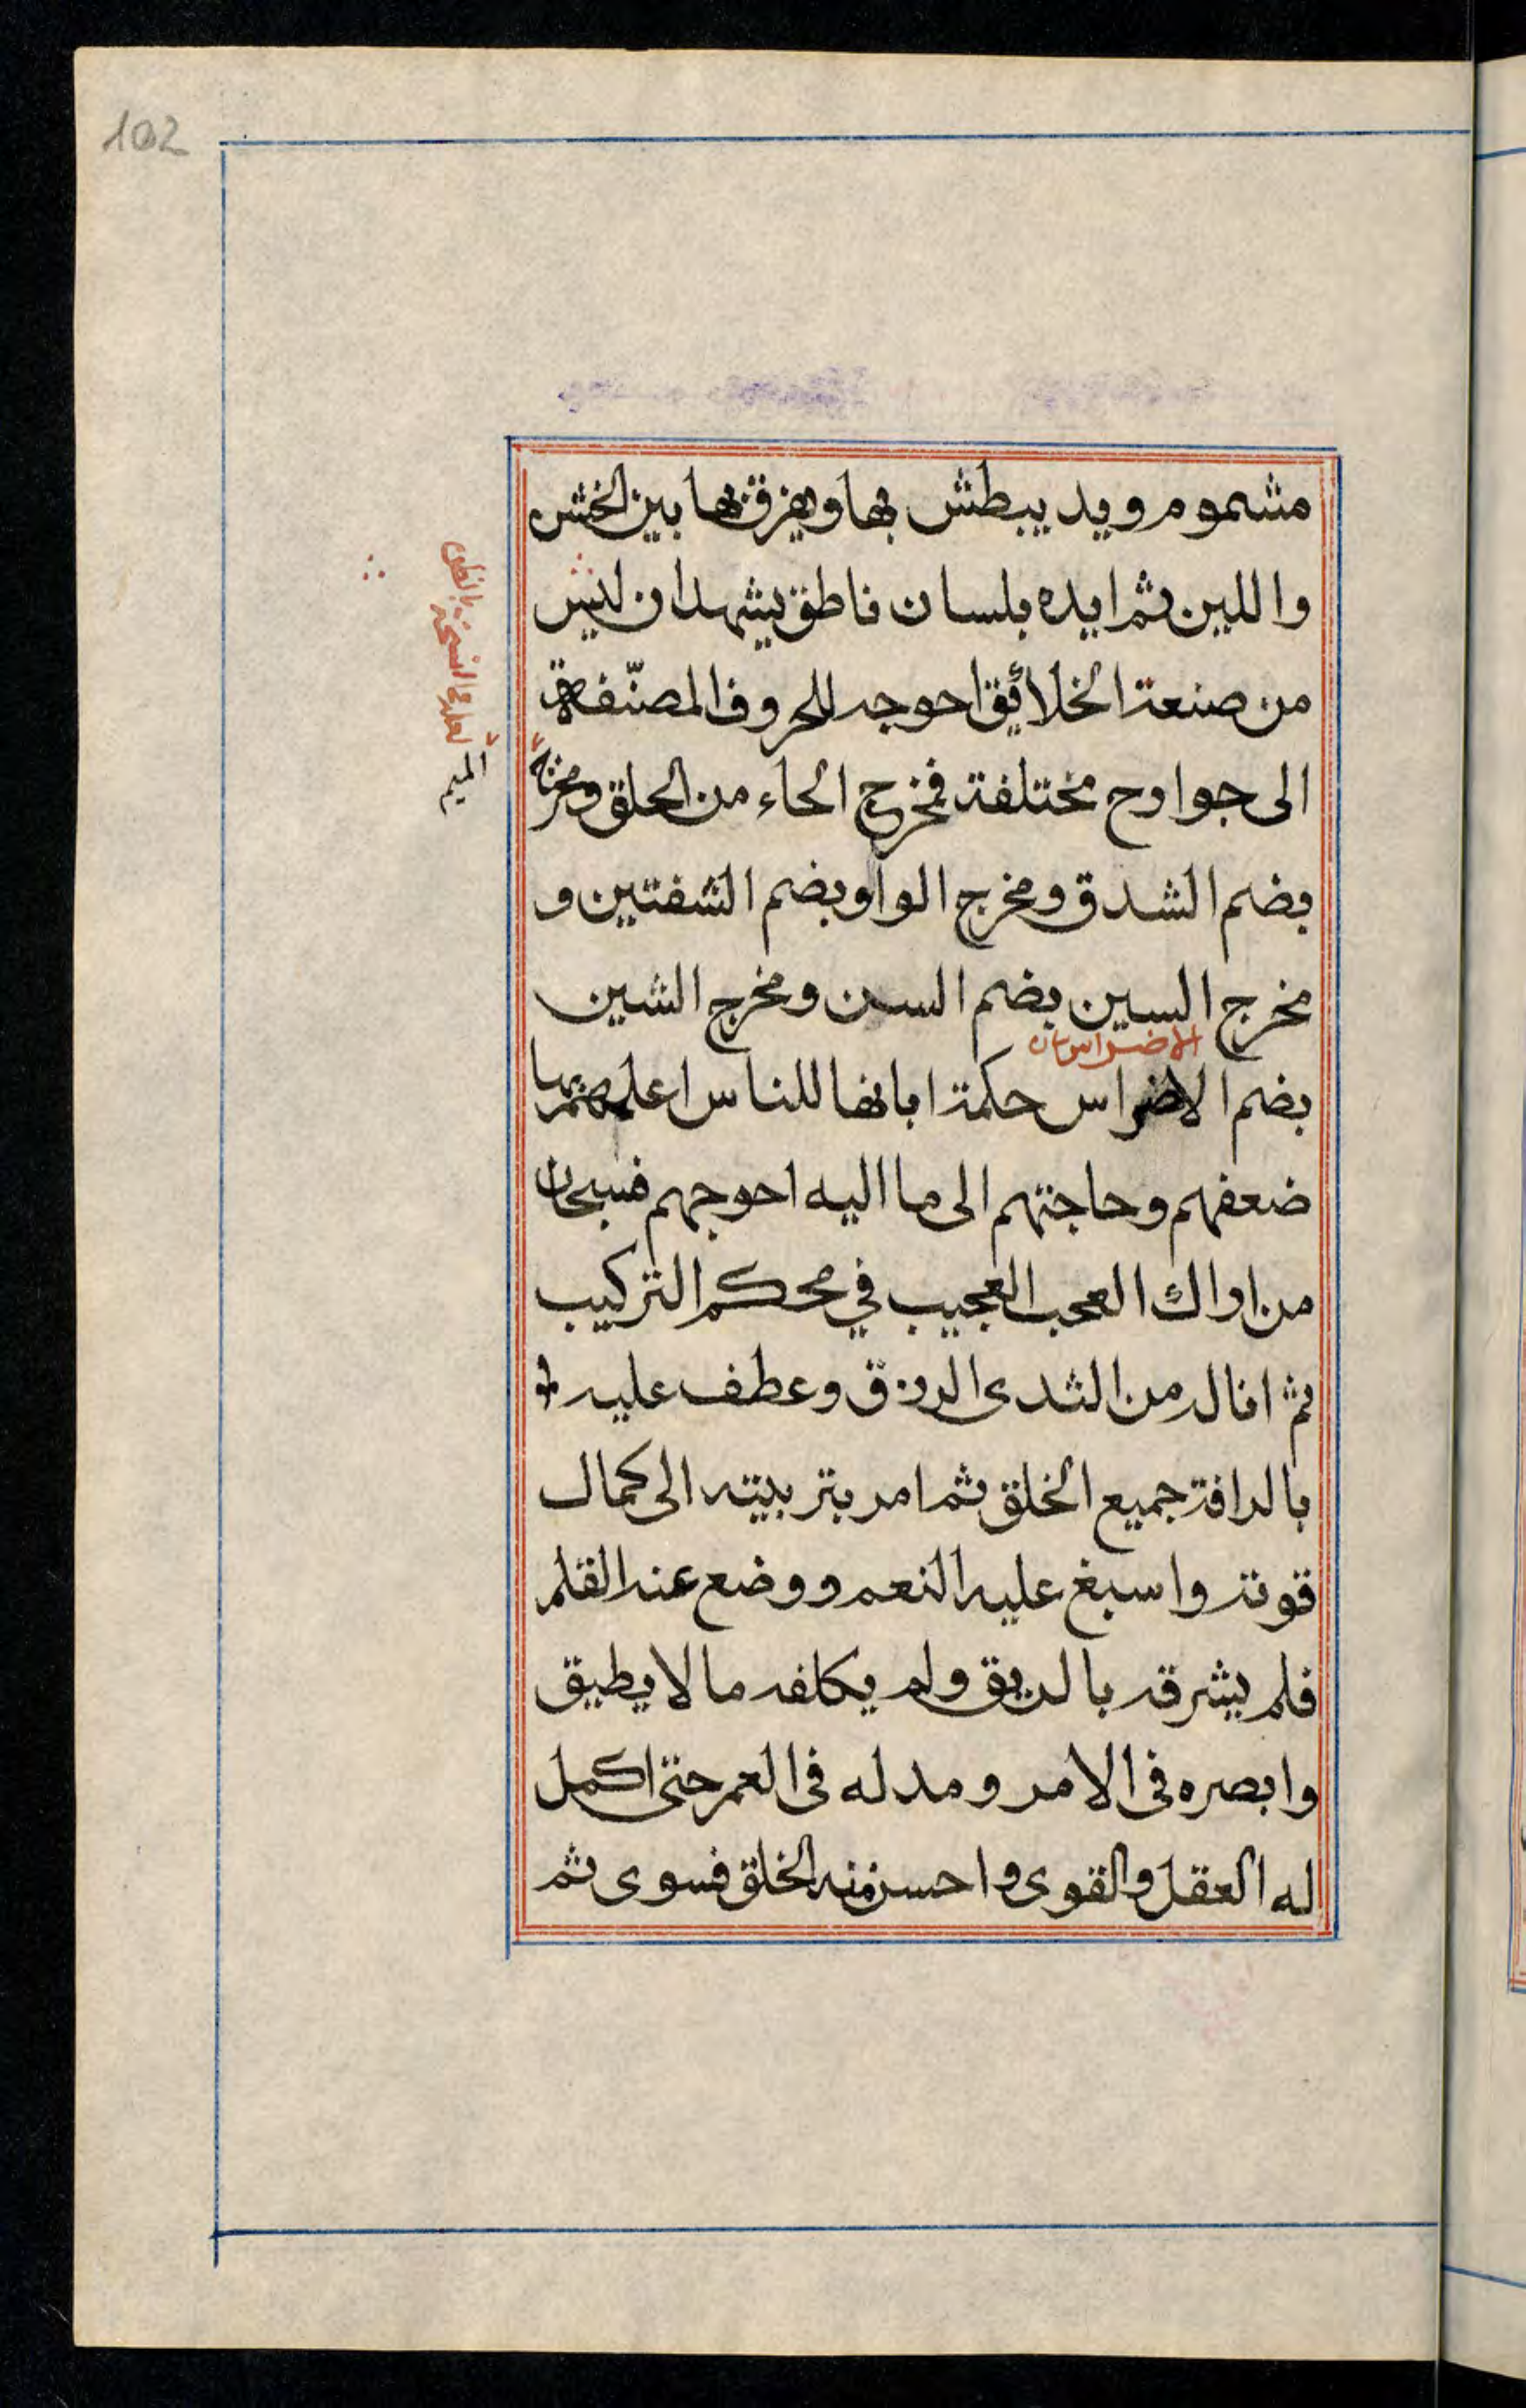 102
مشموم ويد يبطش بها ويفرق بها بين الخشن
واللين ثم ايده بلسان ناطق يشهد ان ليس
من صنعة الخلائق احوجه للحروف المصنّفة
الى جوارح مختلفة فمخرج الحاء من الحلق ومخرج
الميم
بضم الشدق ومخرج الواو بضم الشفتين و
مخرج السين بضم السن ومخرج الشين
الاضراس
بضم الاضراس حكمة ابانها للناس اعلمهم بها
ضعفهم وحاجتهم الى ما اليه احوجهم فسبحان
من اراك العجب العجيب في محكم التركيب
ثم انا له من الثدى الرزق وعطف عليه
بالرافة جميع الخلق ثم امر بتربيته الى كمال
قوته واسبغ عليه النعم ووضع عنه القلم
فلم يشرقه بالريق ولم يكلفه ما لا يطيق
وابصره فى الامر ومد له فى العمر حتى اكمل
له العقل والقوى واحسن منه الخلق فسوى ثم